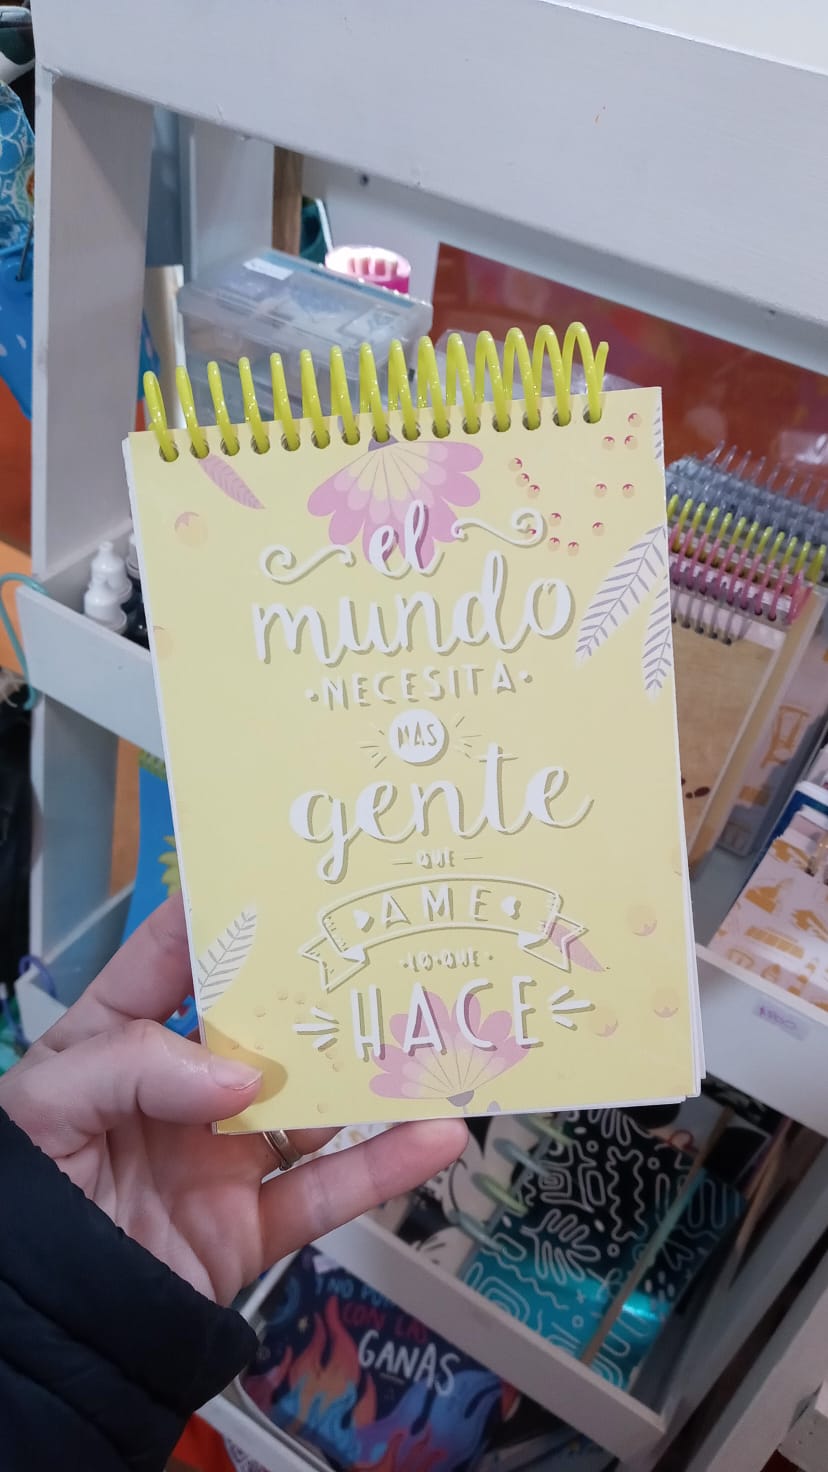 el
mundo
•NECESITA•
MAS
gente
—QUE—
AME
•LO•QUE•
HACE
CON LAS
GANAS